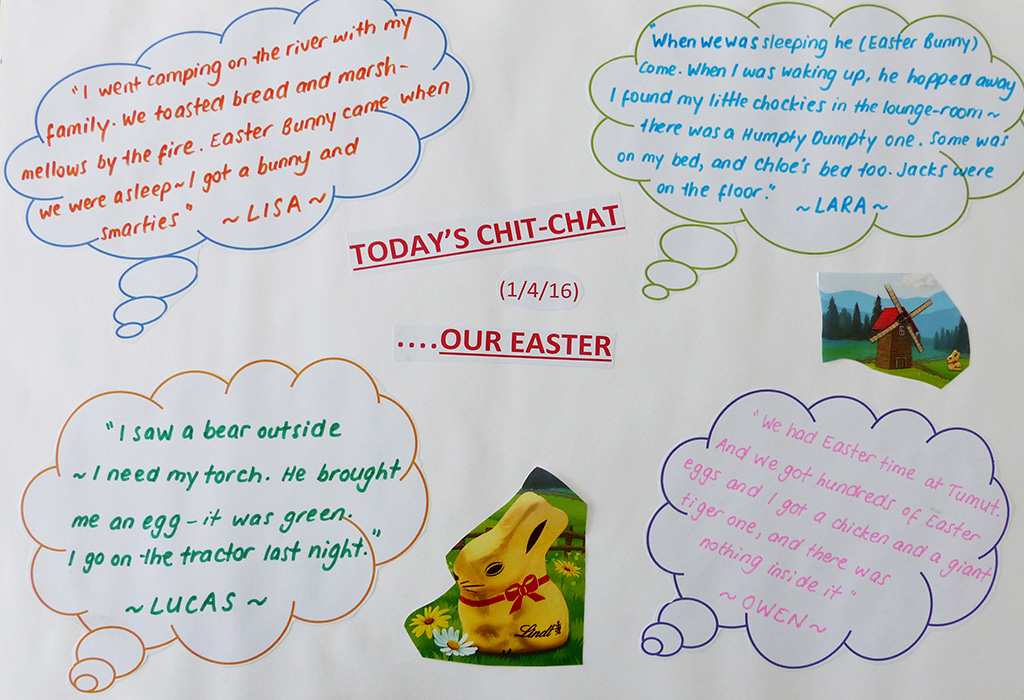 "I went camping on the river with my
family. We toasted bread and marsh-
mellows by the fire. Easter Bunny came when
we were asleep~I got a bunny and
smarties"
~LISA~
"When we was sleeping he (Easter Bunny)
come. When I was waking up, he hopped away
I found my little chockies in the lounge-room~
there was a Humpty Dumpty one. Some was
on my bed, and Chloe's bed too. Jacks were
on the floor."
~LARA~
TODAY'S CHIT-CHAT
(1/4/16)
....OUR EASTER
"I saw a bear outside
~I need my torch. He brought
me an egg-it was green.
I go on the tractor last night."
~LUCAS~
Lindt
"We had Easter time at Tumut.
And we got hundreds of Easter
eggs and I got a chicken and a giant
tiger one, and there was
nothing inside it"
~OWEN~